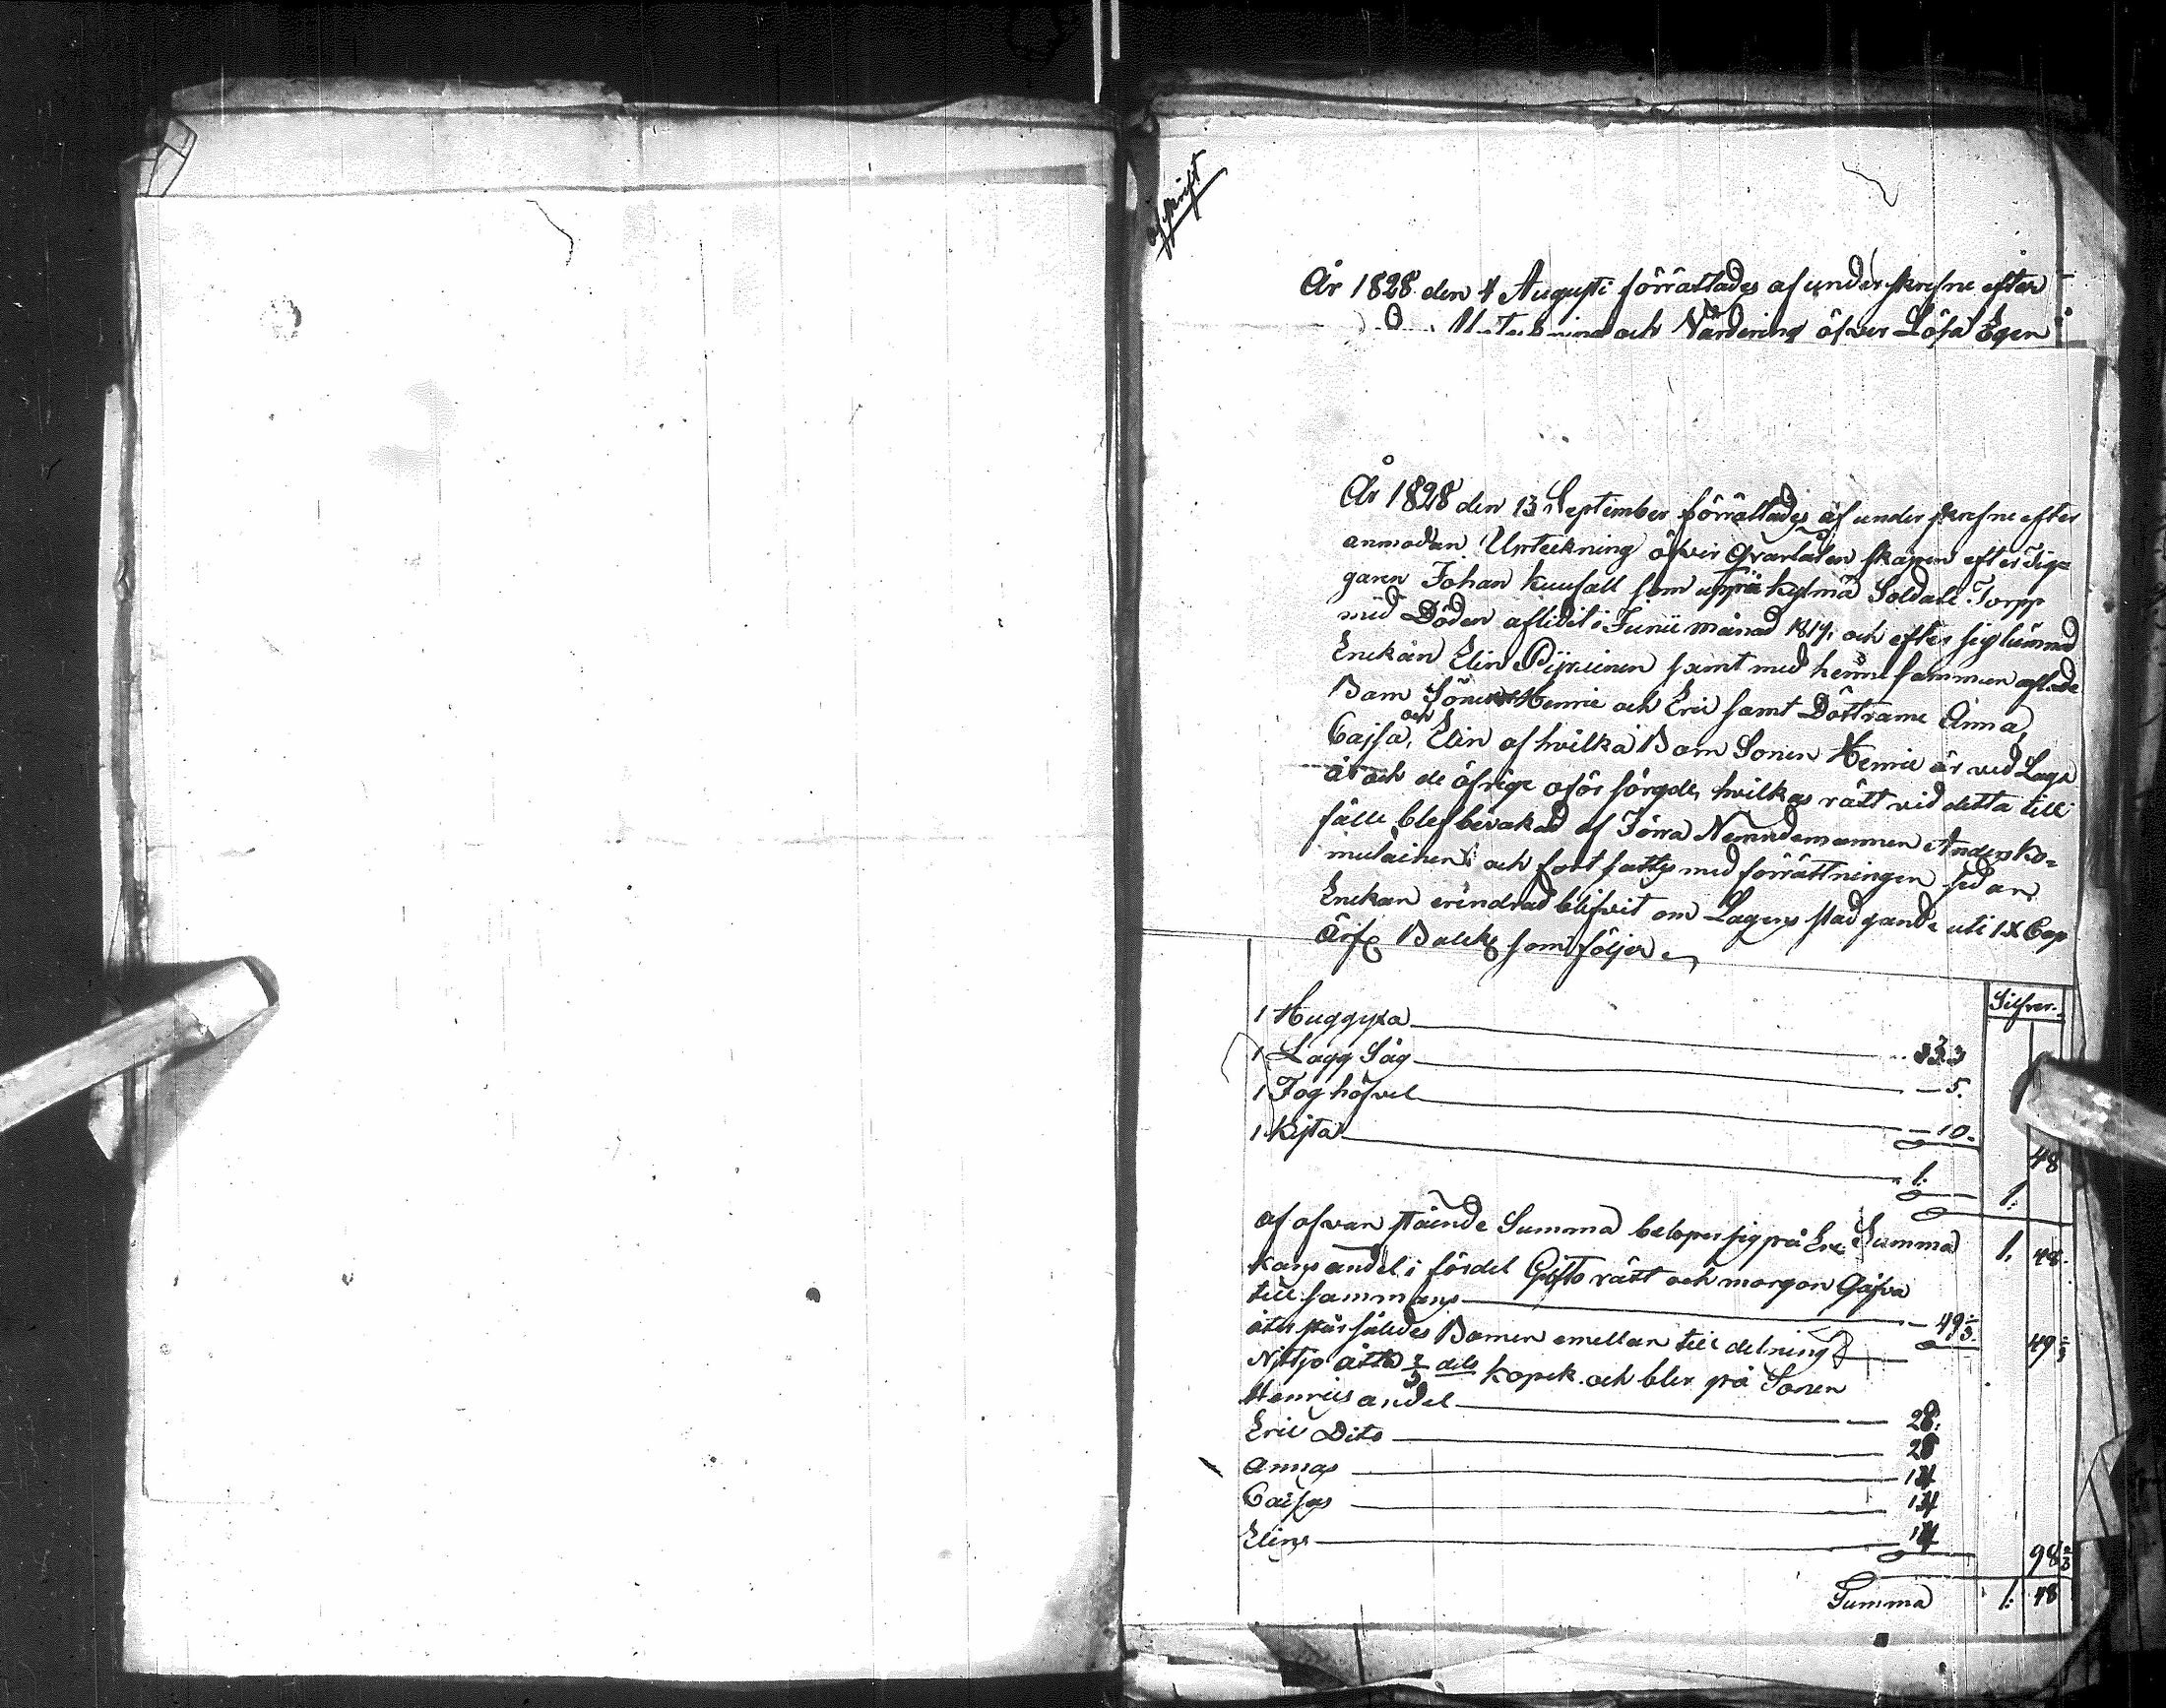 Afskrift
År 1828 den 4 Augusti förrättades af underskrefne efter
och Värdering öfver Lösa Egen
År 1828 den 13 September förrättades af underskrefne efter
anmodan Upteckning öfver Qvarlåtenskapen efter Tig-
garen Johan kuusall som uppå kylmä Soldate Torpp
med Döden aflidet i Junii månad 1819, och efter sig lämnad
Enckan Elin Pijrinen samt med henne samman aflade
Barn Söner Henric och Eric samt Döttrarne Anna,
Caisa, och Elin af hvilka Barn Sonen Henric är ved Laga
år och de öfrige oförsörgde, hvilkas rätt vid detta till
fälle blef bevakad af Förra Nemndemannen Anders Ko-
mulainen; och fortsattes med förrättningen sedan
Enckan erindrad blifvit om Lagens stadgande uti IX Cap
Ärfd Balck som följer
Silfver
1 Huggyxa 33
1 Lagg Såg 5.
1 Foghöfvel 10. 48
1 kista 1: 1:
Summa 1. 48.
af ofvanstående Summa beloper sig på Enc-
kans andel i fördel Gifto rätt och morgon Gåfva
till sammans 49 1/3. 49 1/3
återstår således Barnen emellan till delning
Nittjo åtta 2/3 dels kopek och blir på Sonen
Henrics andel 28:
Eric Dito 28
Annas 14
Caisas 14
Elins 14 98 2/3
Summa 1: 48